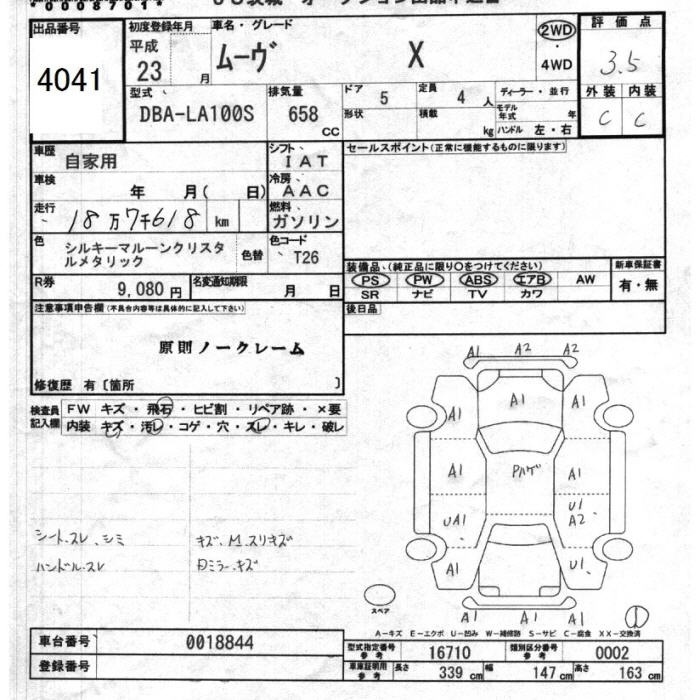 出品番号
4041
初度登録年月
平成
23 月
車名・グレード
ムーヴ X
2WD
4WD
評価点
3.5
外装 内装
C C
型式
DBA-LA100S
排気量
658
CC
ドア 5
定員 4 人
ディーラー・並行
形状
積載 kg
モデル年式 年
ハンドル 左・右
車歴
自家用
シフト
IAT
セールスポイント(正常に機能するものに限ります)
車検
年 月( 日)
冷房
AAC
走行
18万7千618 km
燃料
ガソリン
色
シルキーマルーンクリスタ
ルメタリック
色替
色コード
T26
装備品、(純正品に限り○をつけてください)
新車保証書
PS PW ABS エアB AW
有・無
SR ナビ TV カワ
R券
9,080 円
名変通知期限
月 日
後日品
注意事項申告欄(不具合内容等は具体的に記入して下さい)
原則ノークレーム
修復歴 有〔箇所 〕
検査員
記入欄
FW キズ・飛石・ヒビ割・リペア跡・×要
内装 キズ・汚レ・コゲ・穴・スレ・キレ・破レ
A1 A2 A2
A1 A1 A1
A1 Pハゲ A1
UA1 U1
A2
A1 U1
シートスレ、シミ
キズ、M、スリキズ
ハンドルスレ
Dミラーキズ
スペア
A1 A1 A1
①
A-キズ E-エクボ U-凹み W-補修跡 S-サビ C-腐食 XX-交換済
車台番号
0018844
登録番号
型式指定番号
参考
16710
類別区分番号
参考
0002
車庫証明用
参考
長さ 339 cm
幅 147 cm
高さ 163 cm